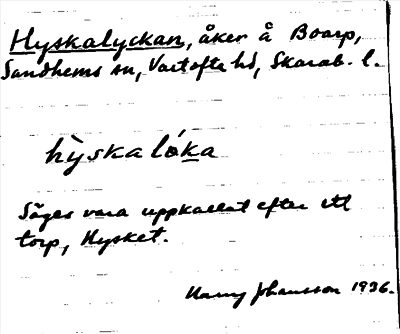 Hyskalyckan, åker å Boarp,
Sandhems sn, Vartofta hd, Skarab. l.
hỳskaló̀ka
Säges vara uppkallat efter ett
torp, Hysket.
Harry Johansson 1936.